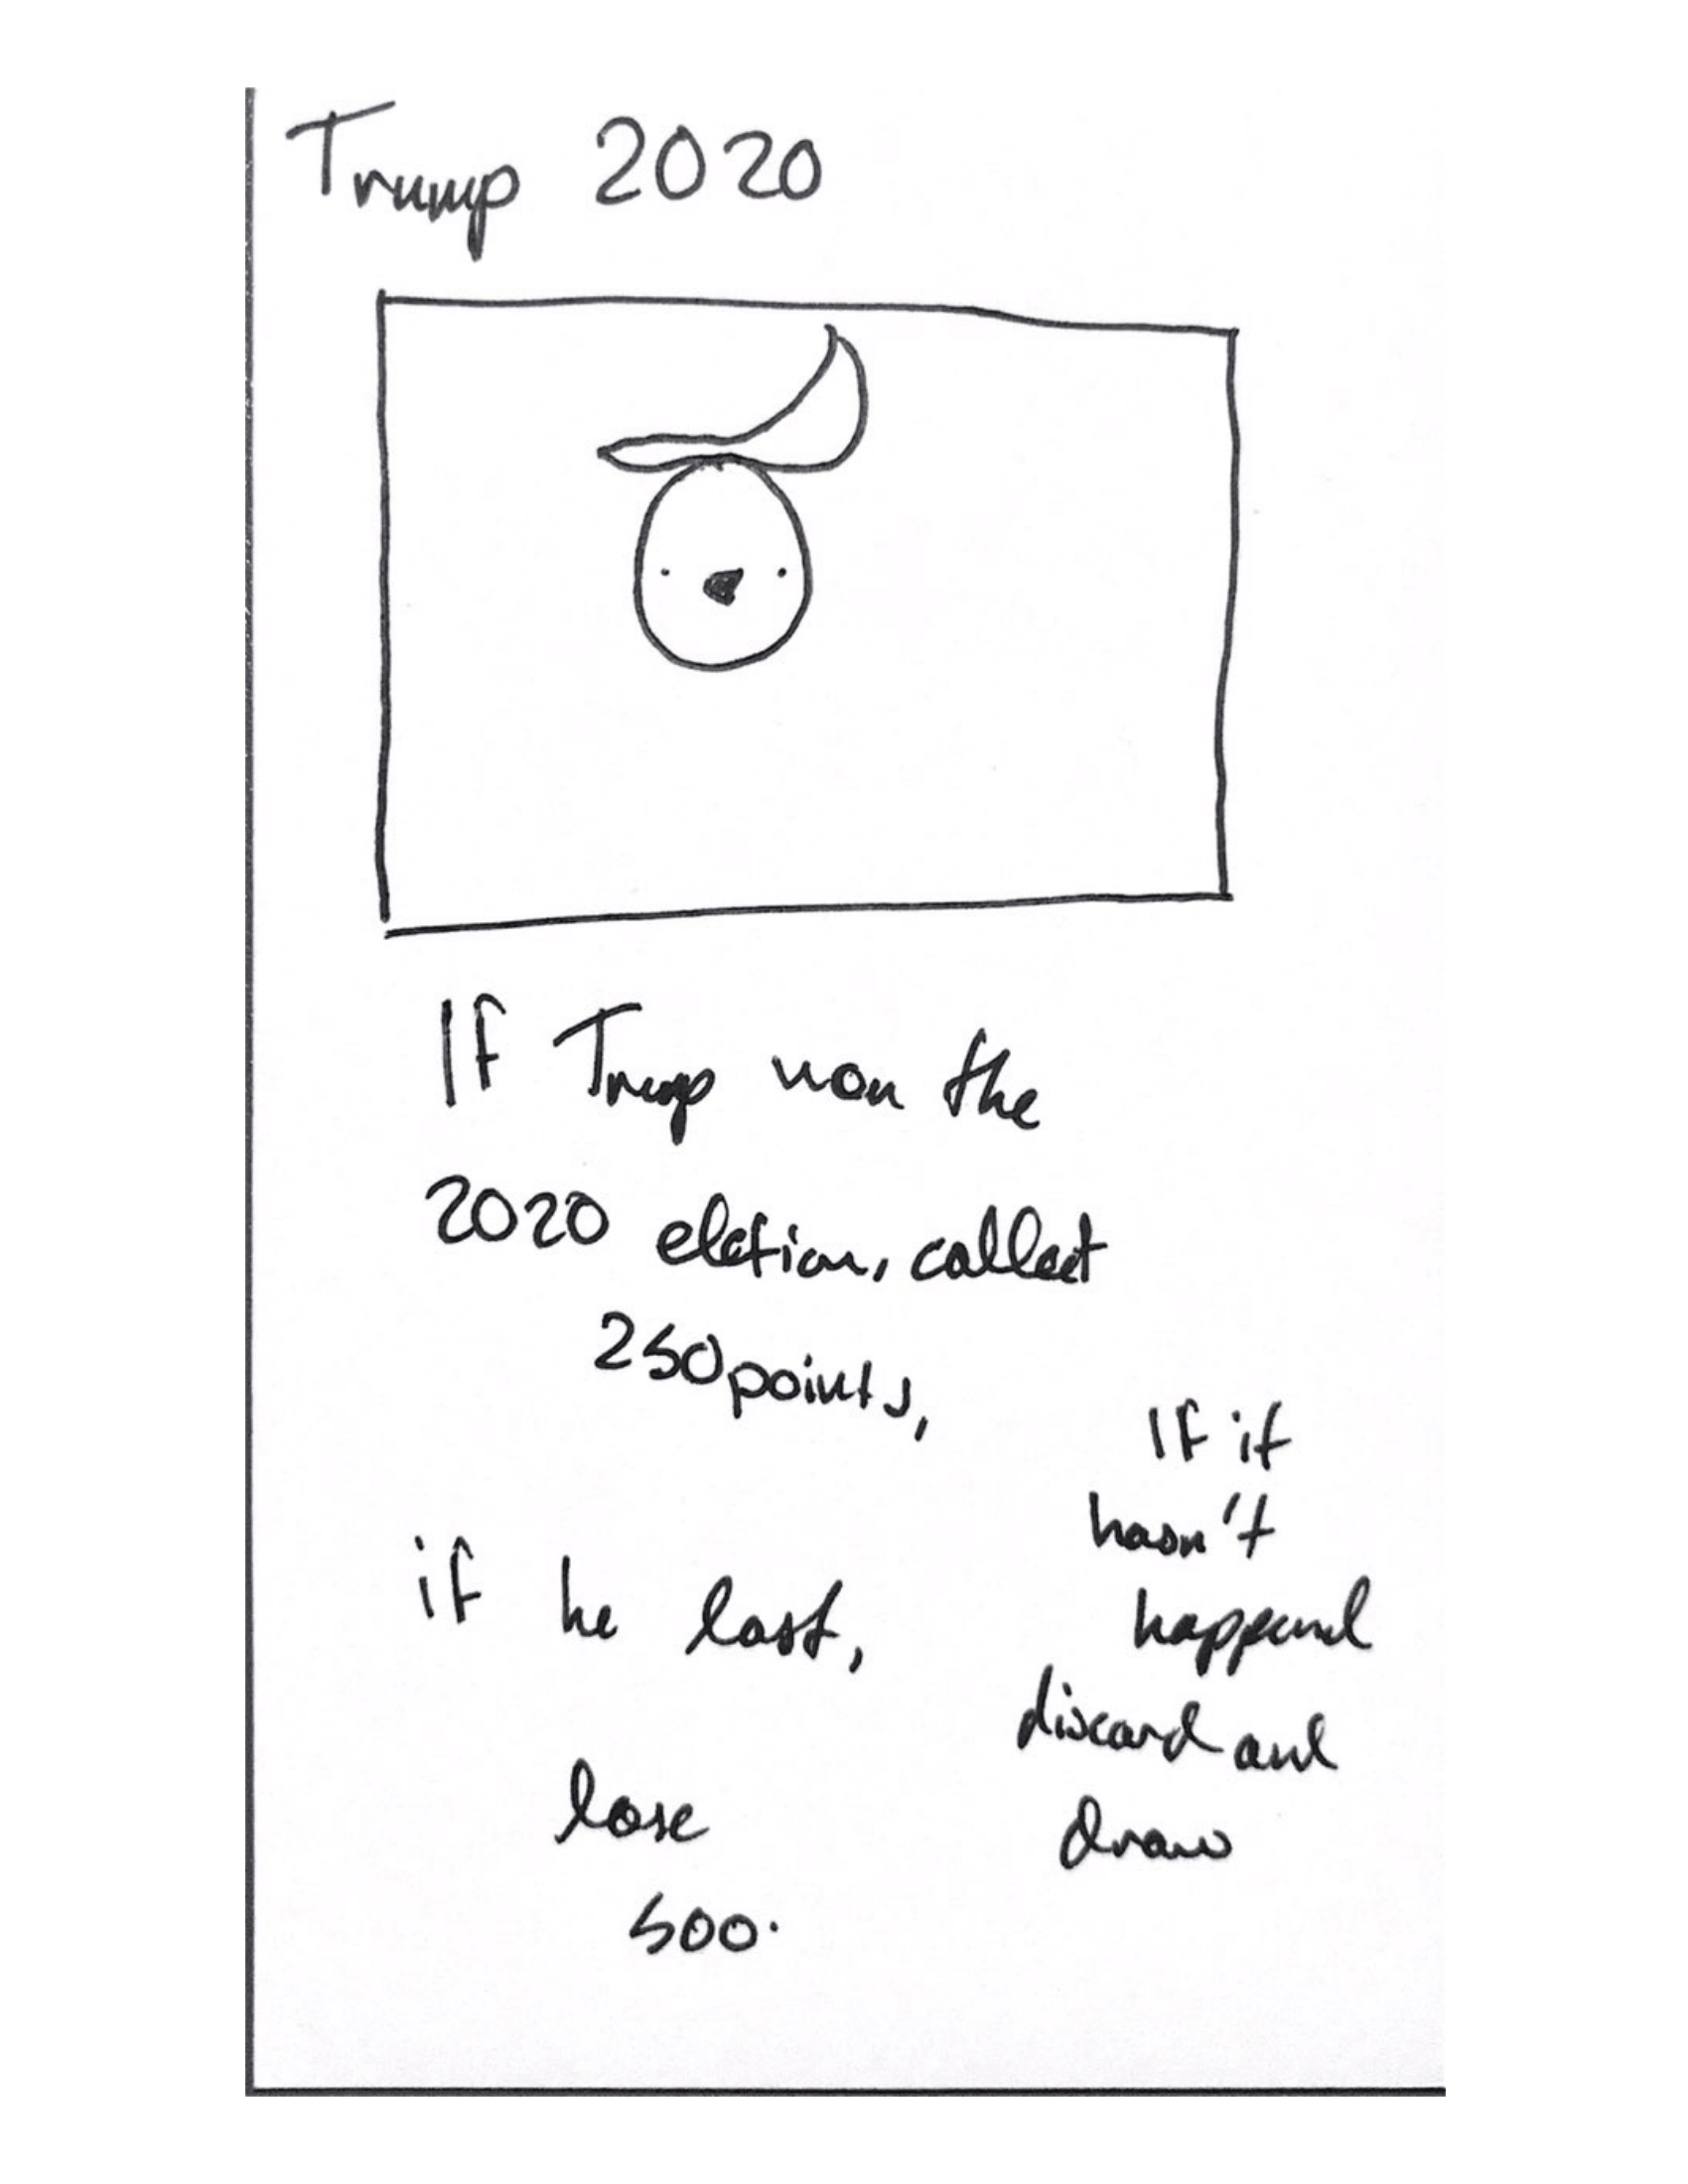 Trump 2020
If Trump won the
2020 elction, collect
250 points,
if he lost,
lose
500.
If it
hasn't
happend
discard and
draw